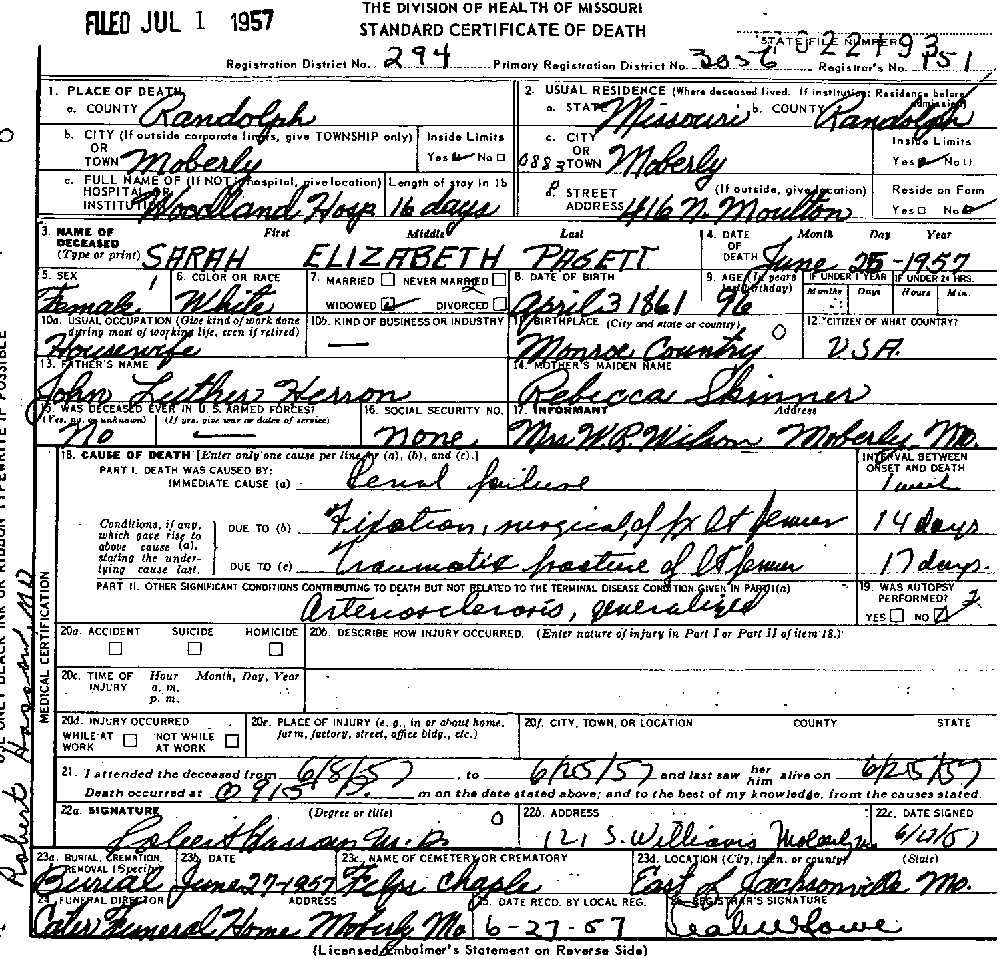 FILED JUL 1 1957
THE DIVISION OF HEALTH OF MISSOURI
STANDARD CERTIFICATE OF DEATH
STATE FILE NUMBER
Registration District No. 294 Primary Registration District No. 3056 Registrar's No. 151
1. PLACE OF DEATH
a. COUNTY Randolph
b. CITY (If outside corporate limits, give TOWNSHIP only) OR TOWN Moberly
Inside Limits Yes No
c. FULL NAME OF (If NOT in hospital, give location) HOSPITAL OR INSTITUTION Woodland Hosp
Length of stay in 1b 16 days
2. USUAL RESIDENCE (Where deceased lived. If institution: Residence before admission)
a. STATE Missouri b. COUNTY Randolph
c. CITY OR TOWN 0883 Moberly
Inside Limits Yes No
d. STREET ADDRESS (If outside, give location) 416 N. Moulton
Reside on Farm Yes No
3. NAME OF DECEASED (Type or print) First Middle Last
SARAH ELIZABETH PAGETT
4. DATE OF DEATH Month Day Year
June 25-1957
5. SEX Female
6. COLOR OR RACE White
7. MARRIED NEVER MARRIED
WIDOWED DIVORCED
8. DATE OF BIRTH April 3 1861
9. AGE (In years last birthday) 96
IF UNDER 1 YEAR Months Days
IF UNDER 24 HRS. Hours Min.
10a. USUAL OCCUPATION (Give kind of work done during most of working life, even if retired) Housewife
10b. KIND OF BUSINESS OR INDUSTRY —
11. BIRTHPLACE (City and state or country) Monroe Country
12. CITIZEN OF WHAT COUNTRY? USA.
13. FATHER'S NAME John Luther Herron
14. MOTHER'S MAIDEN NAME Rebecca Skinner
15. WAS DECEASED EVER IN U. S. ARMED FORCES? (Yes, no, or unknown) (If yes, give war or dates of service) No —
16. SOCIAL SECURITY NO. none
17. INFORMANT Address
Mrs W.P. Wilson Moberly Mo.
18. CAUSE OF DEATH [Enter only one cause per line for (a), (b), and (c).]
INTERVAL BETWEEN ONSET AND DEATH
PART I. DEATH WAS CAUSED BY:
IMMEDIATE CAUSE (a) Renal failure 1 week
Conditions, if any, which gave rise to above cause (a), stating the underlying cause last.
DUE TO (b) Fixation, surgical, of fx lt femur 14 days
DUE TO (c) Traumatic fracture of lt femur 17 days.
PART II. OTHER SIGNIFICANT CONDITIONS CONTRIBUTING TO DEATH BUT NOT RELATED TO THE TERMINAL DISEASE CONDITION GIVEN IN PART I(a)
Arteriosclerosis, generalized
19. WAS AUTOPSY PERFORMED? YES NO 2
20a. ACCIDENT SUICIDE HOMICIDE
20b. DESCRIBE HOW INJURY OCCURRED. (Enter nature of injury in Part I or Part II of item 18.)
20c. TIME OF INJURY Hour Month, Day, Year
a. m.
p. m.
20d. INJURY OCCURRED
WHILE AT WORK NOT WHILE AT WORK
20e. PLACE OF INJURY (e. g., in or about home, farm, factory, street, office bldg., etc.)
20f. CITY, TOWN, OR LOCATION COUNTY STATE
21. I attended the deceased from 6/8/57, to 6/25/57 and last saw her him alive on 6/25/57
Death occurred at 0915 m on the date stated above; and to the best of my knowledge, from the causes stated.
22a. SIGNATURE (Degree or title)
Robert Hasson M.D.
22b. ADDRESS 121 S. Williams Moberly
22c. DATE SIGNED
23a. BURIAL, CREMATION, REMOVAL (Specify) Burial
23b. DATE June 27-1957
23c. NAME OF CEMETERY OR CREMATORY Felps Chaple
23d. LOCATION (City, town, or county) (State) East of Jacksonville Mo.
24. FUNERAL DIRECTOR ADDRESS
Cater Funeral Home Moberly Mo
25. DATE RECD. BY LOCAL REG. 6-27-57
26. REGISTRAR'S SIGNATURE
(Licensed Embalmer's Statement on Reverse Side)
MEDICAL CERTIFICATION
USE ONLY BLACK INK OR RIBBON TYPEWRITE IF POSSIBLE
Robert Hasson MD